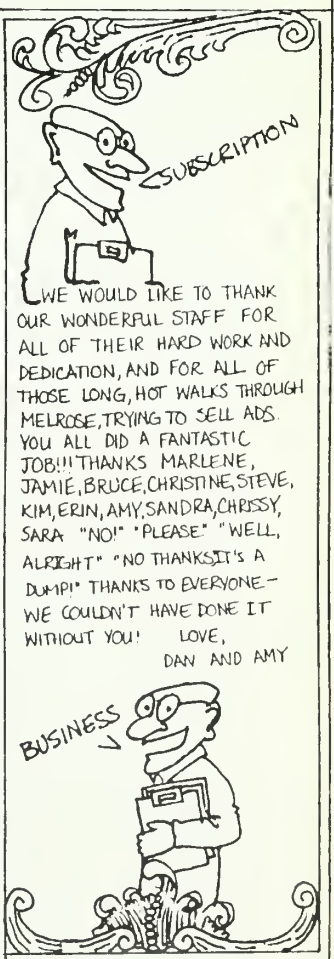 SUBSCRIPTION
WE WOULD LIKE TO THANK
OUR WONDERFUL STAFF FOR
ALL OF THEIR HARD WORK AND
DEDICATION, AND FOR ALL OF
THOSE LONG, HOT WALKS THROUGH
MELROSE, TRYING TO SELL ADS.
YOU ALL DID A FANTASTIC
JOB!!! THANKS MARLENE,
JAMIE, BRUCE, CHRISTINE, STEVE,
KIM, ERIN, AMY, SANDRA, CHRISSY,
SARA "NO!" "PLEASE" "WELL,
ALRIGHT" "NO THANKS, IT'S A
DUMP!" THANKS TO EVERYONE-
WE COULDN'T HAVE DONE IT
WITHOUT YOU! LOVE,
DAN AND AMY
BUSINESS